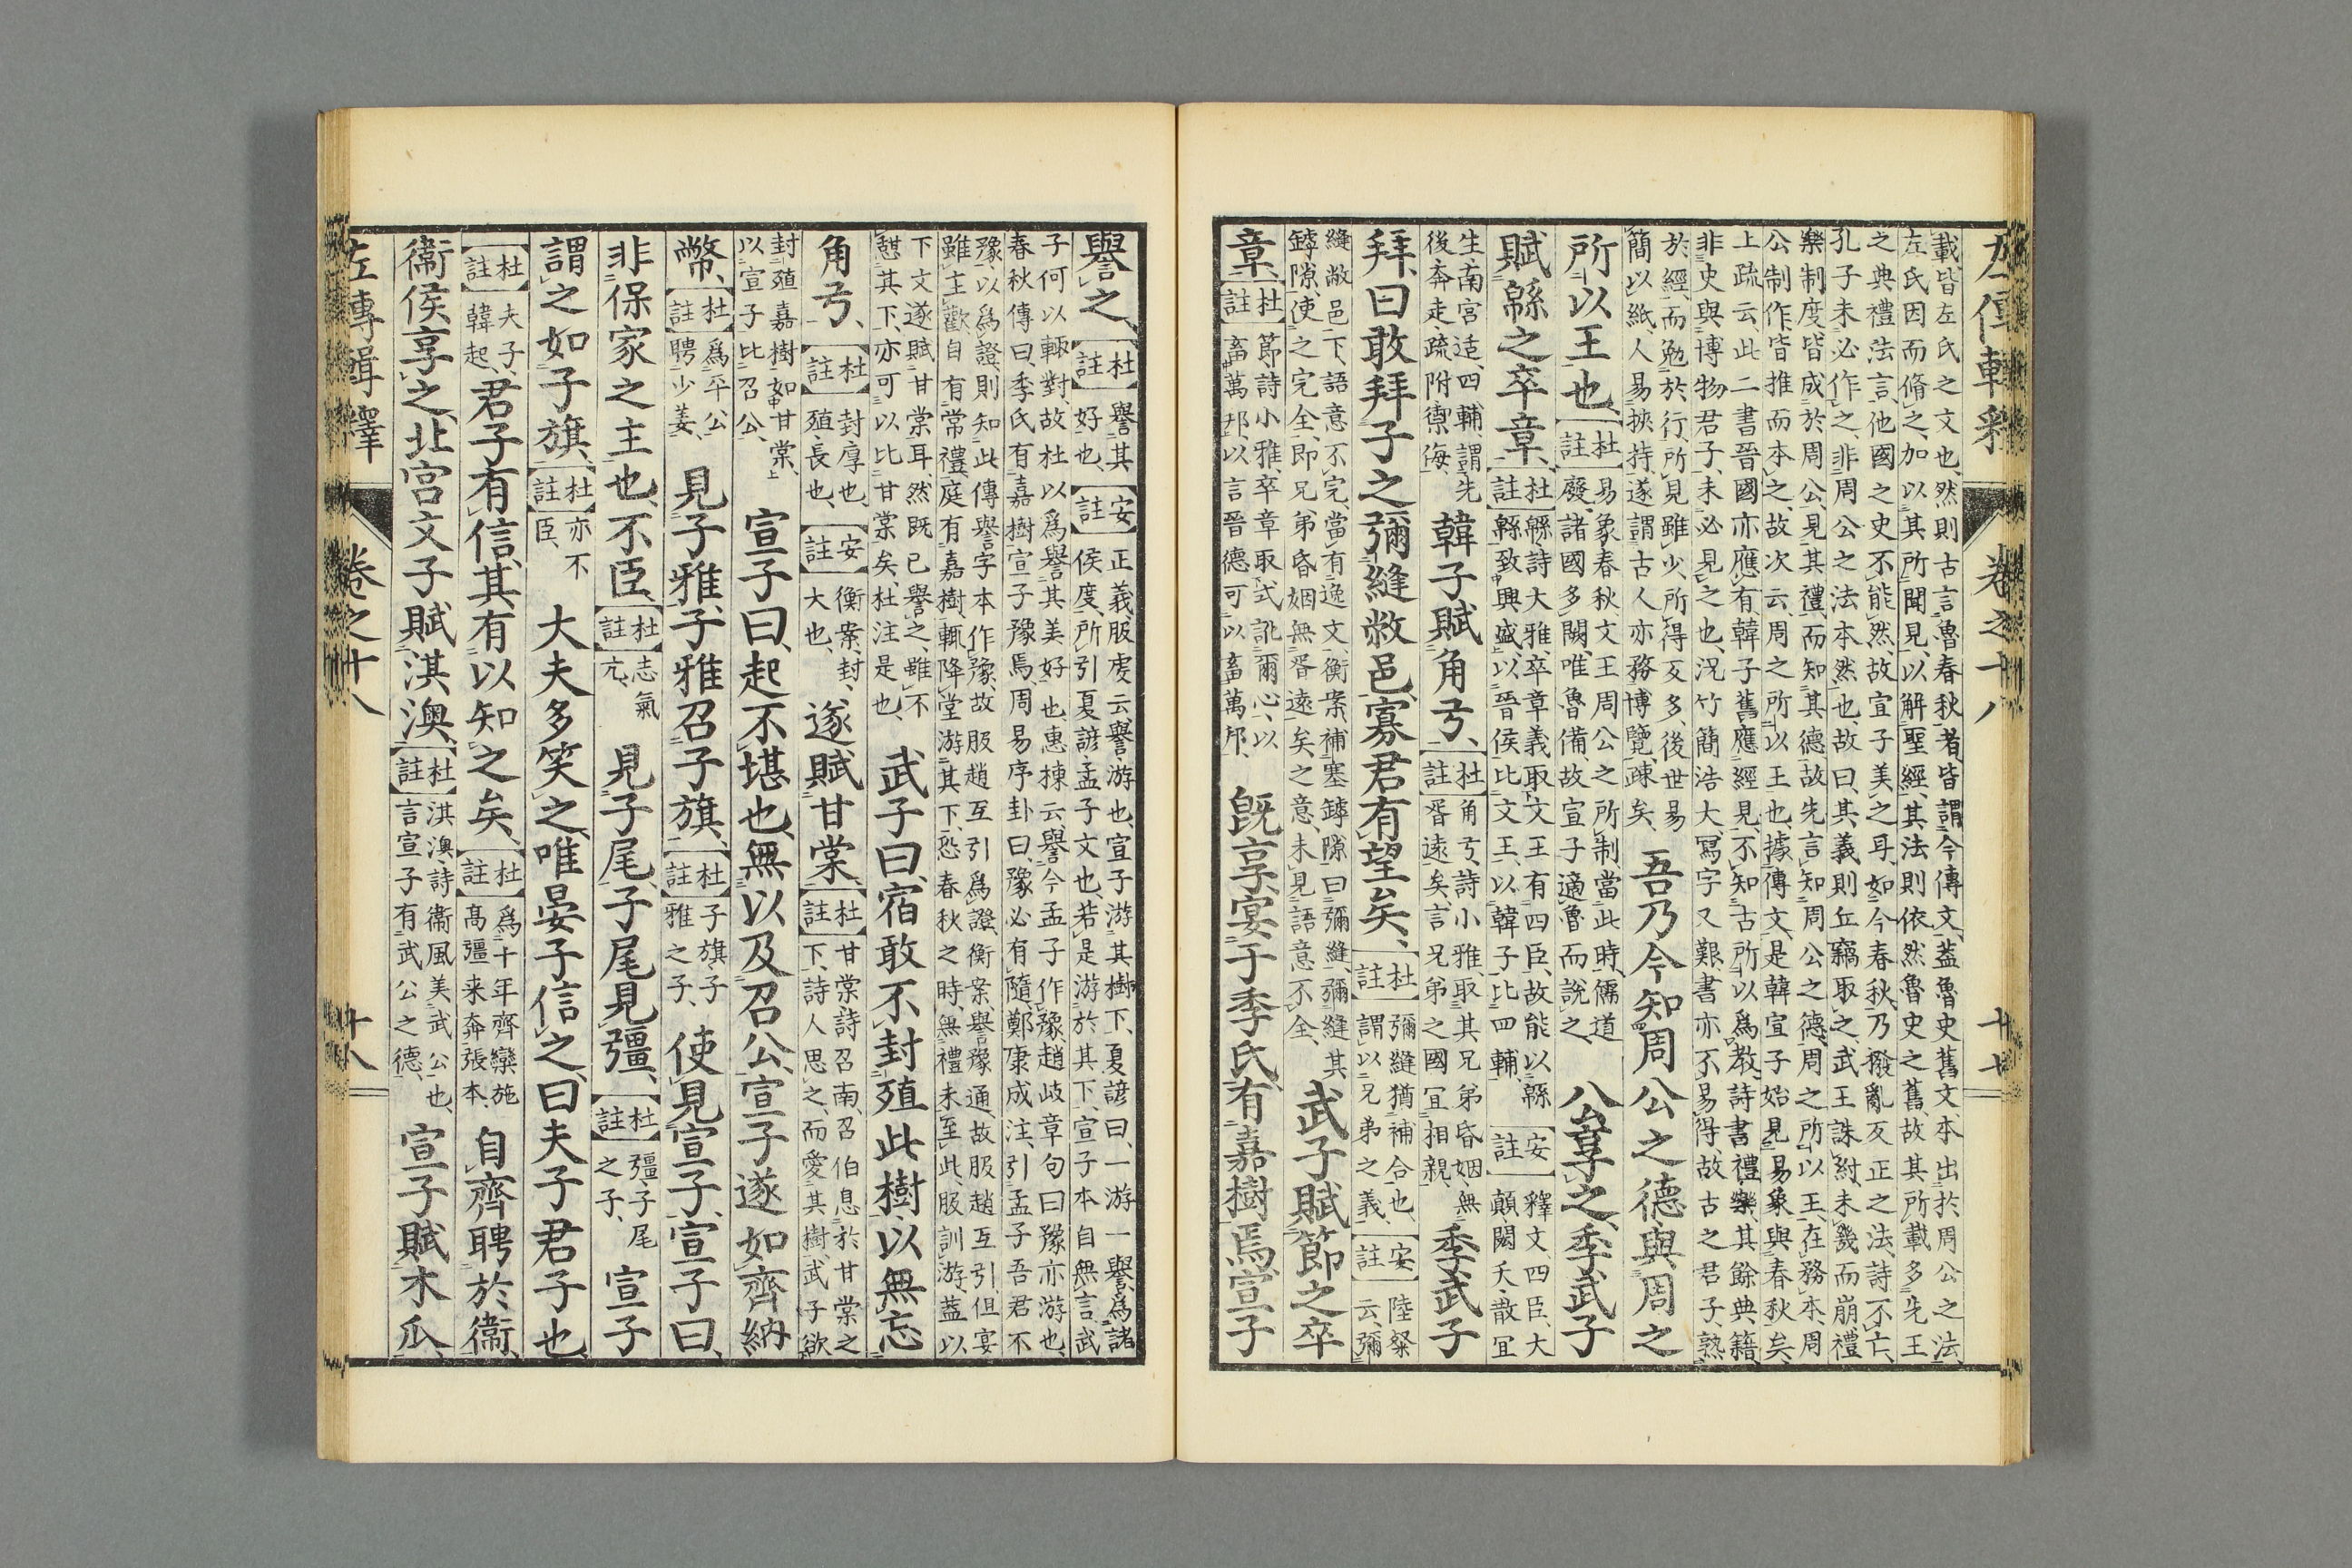 左傳輯釋 卷之十八 十七
載皆左氏之文也、然則古言魯春秋者、皆謂今傳文、蓋魯史舊文、本出於周公之法、
左氏因而脩之、加以其所聞見、以解聖經、其法則依然魯史之舊、故其所載多先王
之典禮法言、他國之史不能然、故宣子美之耳、如今春秋、乃撥亂反正之法、詩不亡、
孔子未必作之、非周公之法本然也、故曰、其義則丘竊取之、武王誅紂、未幾而崩、禮
樂制度皆成於周公、見其禮、而知其德、故先言知周公之德、周之所以王、在務本、周
公制作皆推而本之、故次云、周之所以王也、據傳文、是韓宣子始見易象與春秋矣、
上疏云、此二書晉國亦應有、韓子舊應經見、不知古所以為教、詩書禮樂、其餘典籍、
非史與博物君子、未必見之也、況竹簡浩大、寫字又艱、書亦不易得、故古之君子、熟
於經、而勉於行、所見雖少、所得反多、後世易
簡以紙、人易挾持、遂謂古人亦務博覽、疎矣、
吾乃今知周公之德、與周之
所以王也、【杜註】易象春秋文王周公之所制、當此時、儒道
廢、諸國多闕、唯魯備、故宣子適魯而說之、
公享之、季武子
賦緜之卒章、【杜註】緜詩大雅、卒章義取文王有四臣、故能以緜
緜致興盛、以晉侯比文王、以韓子比四輔、
【安註】釋文、四臣、大
顛、閎夭、散宜
生、南宮适、四輔、謂先
後、奔走、疏附、禦侮、
韓子賦角弓、【杜註】角弓、詩小雅、取其兄弟昏姻、無
胥遠矣、言兄弟之國宜相親、
季武子
拜、曰、敢拜子之彌縫敝邑、寡君有望矣、【杜註】彌縫猶補合也、
謂以兄弟之義、
【安註】陸粲
云、彌
縫敝邑下、語意不完、當有逸文、衡案、補塞罅隙、曰彌縫、彌縫其
罅隙、使之完全、即兄弟昏姻無胥遠矣之意、未見語意不全、
武子賦節之卒
章、【杜註】節、詩小雅、卒章取式訛爾心、以
畜萬邦、以言晉德可以畜萬邦、
既享、宴于季氏、有嘉樹焉、宣子
譽之、【杜註】譽其
好也、
【安註】正義、服虔云、譽、游也、宣子游其樹下、夏諺曰、一游一譽、為諸
侯度、所引夏諺、孟子文也、若是游於其下、宣子本自無言、武
子何以輒對、故杜以為譽其美好也、惠棟云、譽、今孟子作豫、趙岐章句曰、豫亦游也、
春秋傳曰、季氏有嘉樹、宣子豫焉、周易序卦曰、豫必有隨、鄭康成注、引孟子吾君不
豫、以為證、則知此傳譽字本作豫、故服趙互引為證、衡案、譽豫通、故服趙互引、但宴
雖主歡、自有常禮、庭有嘉樹、輒降堂游其下、恐春秋之時、無禮未至此、服訓游、蓋以
下文遂賦甘棠耳、然既已譽之、雖不
憇其下、亦可以比甘棠矣、杜注是也、
武子曰、宿敢不封殖此樹、以無忘
角弓、【杜註】封、厚也、
殖、長也、
【安註】衡案、封、
大也、
遂賦甘棠、【杜註】甘棠、詩召南、召伯息於甘棠之
下、詩人思之、而愛其樹、武子欲
封殖嘉樹如甘棠、
以宣子比召公、
宣子曰、起不堪也、無以及召公、宣子遂如齊納
幣、【杜註】為平公
聘少姜、
見子雅、子雅召子旗、【杜註】子旗、子
雅之子、
使見宣子、宣子曰、
非保家之主也、不臣、【杜註】志氣
亢、
見子尾、子尾見彊、【杜註】彊、子尾
之子、
宣子
謂之如子旗、【杜註】亦不
臣、
大夫多笑之、唯晏子信之、曰、夫子君子也、
【杜註】夫子、
韓起、
君子有信、其有以知之矣、【杜註】為十年齊欒施
高彊來奔張本、
自齊聘於衞、
衞侯享之、北宮文子賦淇澳、【杜註】淇澳、詩衞風、美武公也、
言宣子有武公之德、
宣子賦木瓜、
左傳輯釋 卷之十八 十八